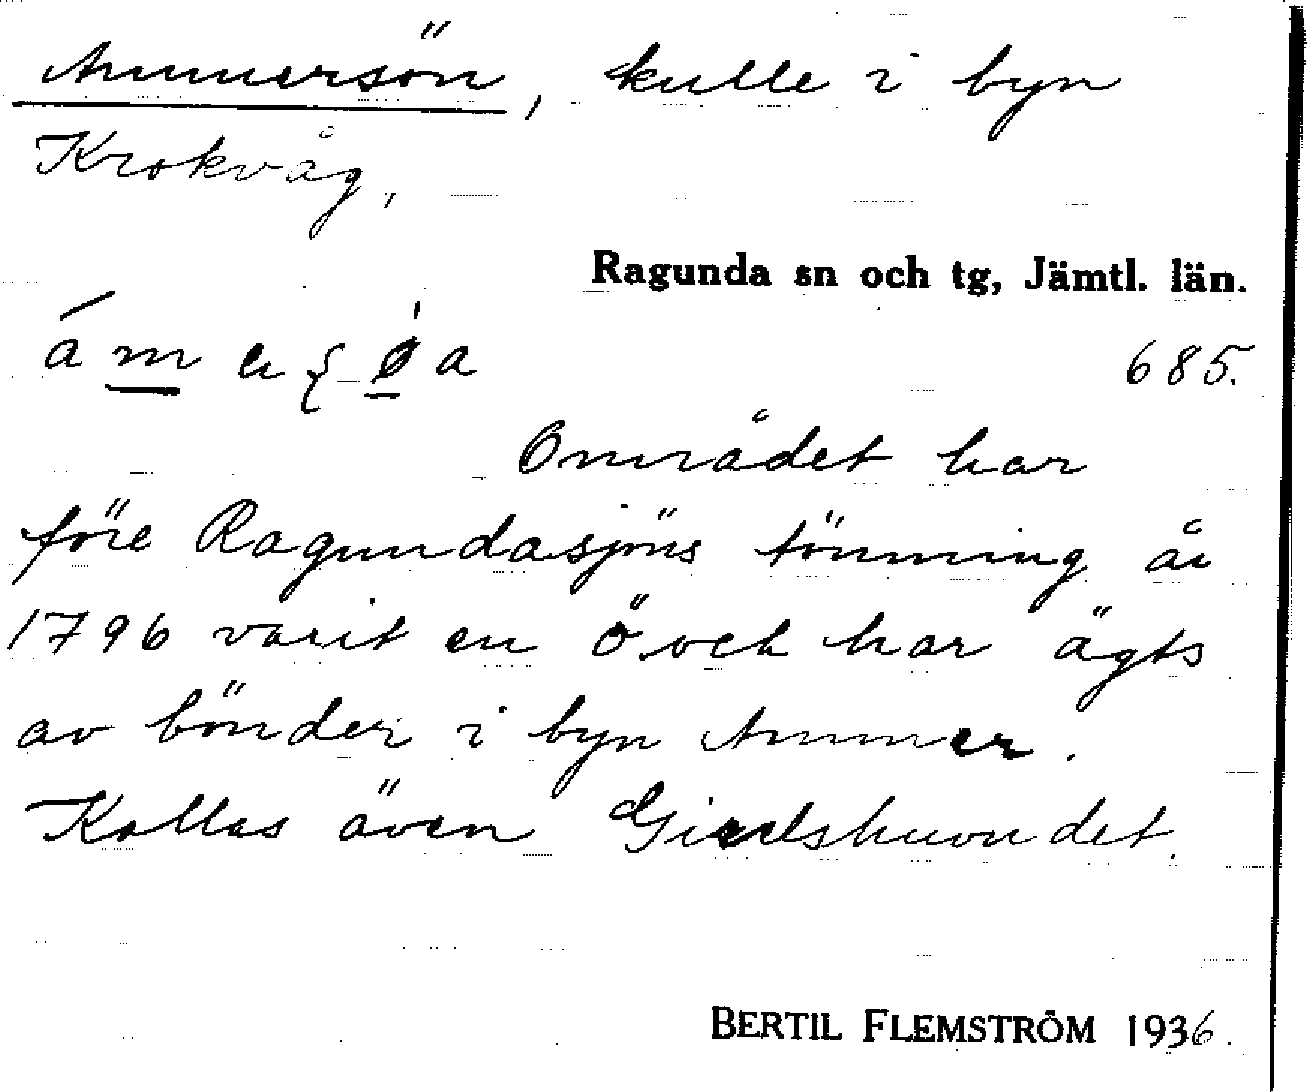 Ammersön, kulle i byn
Krokvåg,
Ragunda sn och tg, Jämtl. län.
685.
Området har
före Ragundasjöns tömning år
1796 varit en ö och har ägts
av bönder i byn Ammer.
Kallas även
BERTIL FLEMSTRÖM 1936.